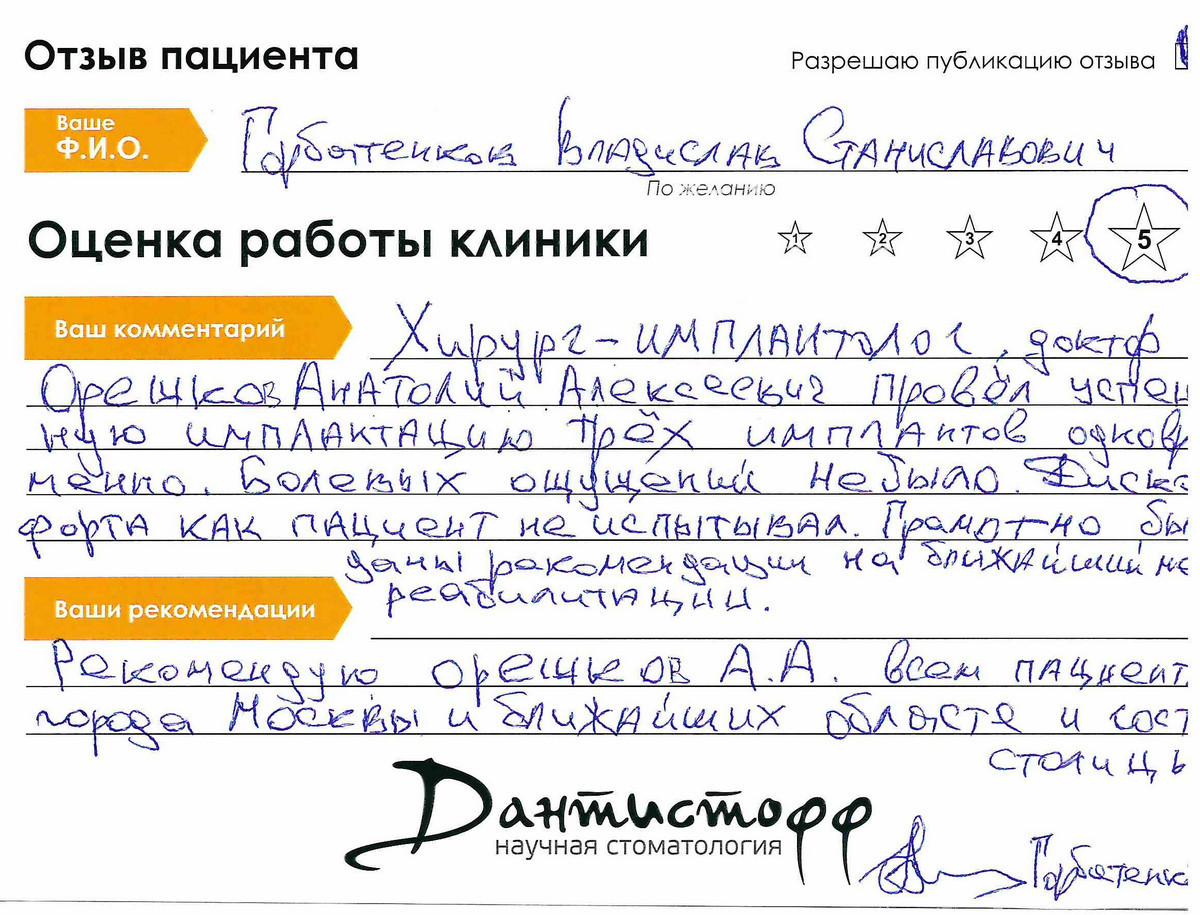 Отзыв пациента
Разрешаю публикацию отзыва
Ваше
Ф.И.О.
Горбатенков Владислав Станиславович
По желанию
Оценка работы клиники
1 2 3 4 5
Ваш комментарий
Хирург-имплантолог, доктор
Орешков Анатолий Алексеевич провёл успеш
ную имплактацию трёх имплантов однов
менно. Болевых ощущений не было. Диско
форта как пациент не испытывал. Грамотно бы
даны рекомендации на ближайший не
реабилитации.
Ваши рекомендации
Рекомендую Орешков А.А. всем пациент
города Москвы и ближайших областе и сост
столицы
Дантистофф
научная стоматология
Горбатенк